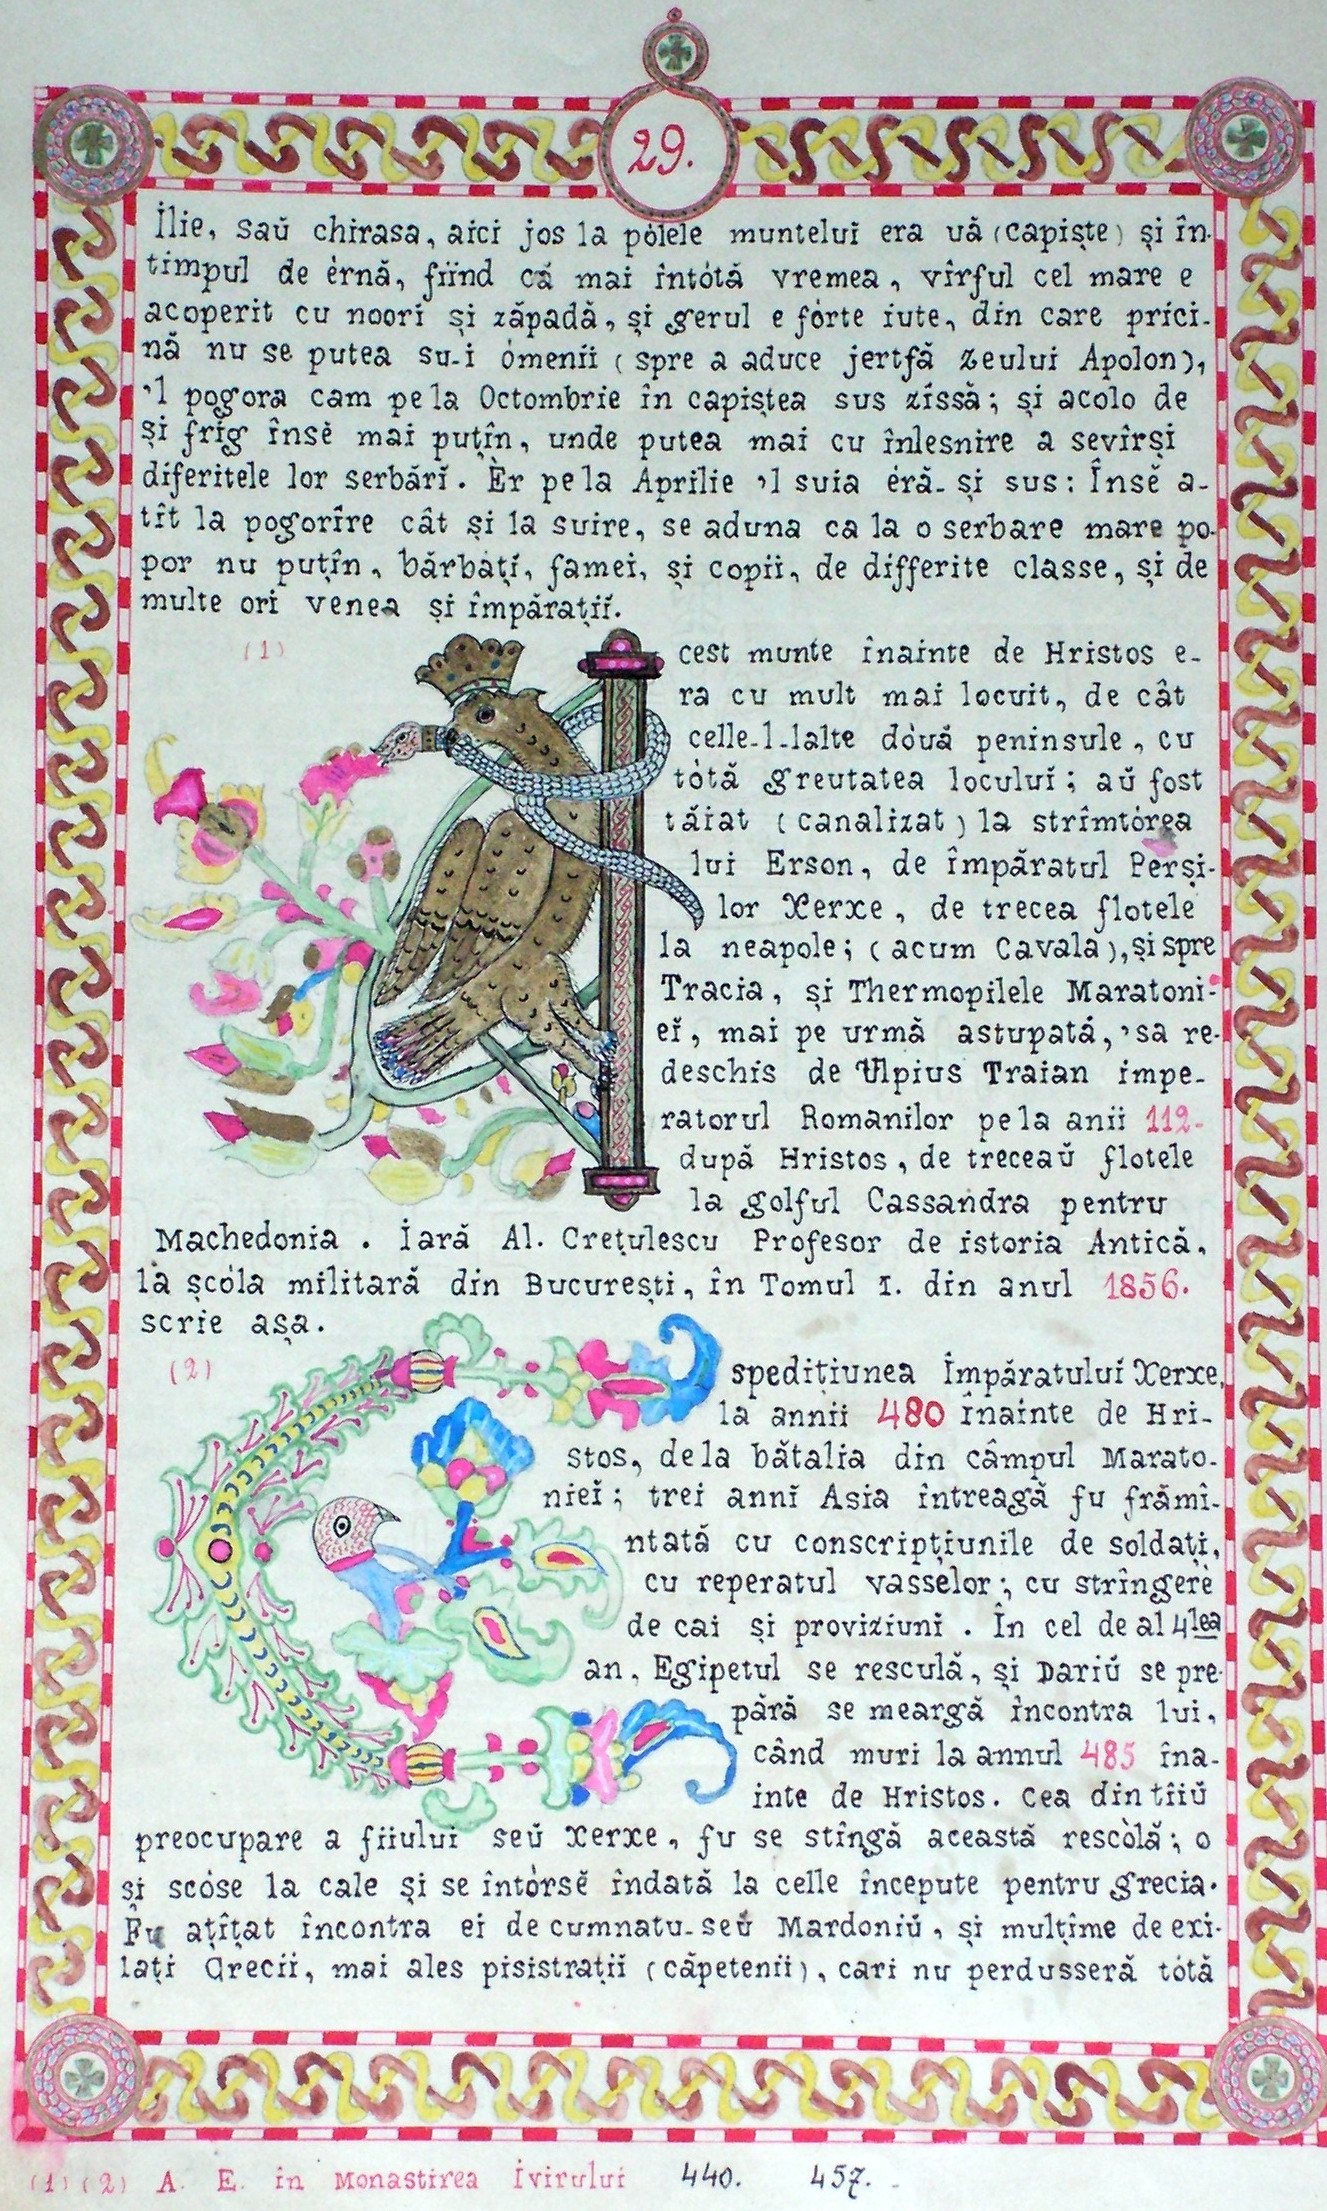 29.
Ilie, saŭ chirasa, aici jos la pólele munteluĭ era uă (capiște) și în-
timpul de érnă, fiind că mai întótă vremea, vîrful cel mare e
acoperit cu noori și zăpadă, și gerul e fórte iute, din care prici-
nă nu se putea su-i ómenii (spre a aduce jertfă zeului Apolon),
'l pogora cam pe la Octombrie în capiștea sus zissă; și acolo de
și frig însĕ mai puțîn, unde putea mai cu înlesnire a sevîrși
diferitele lor serbărĭ. Ér pe la Aprilie 'l suia éră-și sus: Însĕ a-
tît la pogorîre cât și la suire, se aduna ca la o serbare mare po-
por nu puțîn, bărbațĭ, famei, și copii, de differite classe, și de
multe ori venea și împărațiĭ.
(1) Acest munte înainte de Hristos e-
ra cu mult mai locuit, de cât
celle-l-lalte dóuă peninsule, cu
tótă greutatea loculuĭ; aŭ fost
tăiat (canalizat) la strîmtórea
lui Erson, de împăratul Perși-
lor Xerxe, de trecea flotele
la neapole; (acum Cavala), și spre
Tracia, și Thermopilele Maratoni-
eĭ, mai pe urmă astupată, 'sa re-
deschis de Ulpius Traian impe-
ratorul Romanilor pe la anii 112-
după Hristos, de treceaŭ flotele
la golful Cassandra pentru
Machedonia. Iară Al. Crețulescu Profesor de istoria Antică,
la șcóla militară din București, în Tomul I. din anul 1856.
scrie așa.
(2) Espedițiunea Împăratuluĭ Xerxe,
la annii 480 înainte de Hri-
stos, de la bătalia din câmpul Marato-
nieĭ; trei annĭ Asia întreagă fu frămî-
ntată cu conscripțiunile de soldațĭ,
cu reperatul vasselor; cu strîngere
de cai și proviziuni. În cel de al 4lea
an, Egipetul se resculă, și Dariŭ se pre-
pără se meargă încontra lui,
când muri la annul 485 îna-
inte de Hristos. Cea din tîiŭ
preocupare a fiiului seŭ Xerxe, fu se stîngă această rescólă; o
și scóse la cale și se întórsĕ îndată la celle începute pentru grecia.
Fu ațîțat încontra ei de cumnatu-seŭ Mardoniŭ, și mulțîme de exi-
lați Grecii, mai ales pisistrații (căpetenii), cari nu perdusseră tótă
(1) (2) A. E. în Monastirea Ivirului 440. 457.